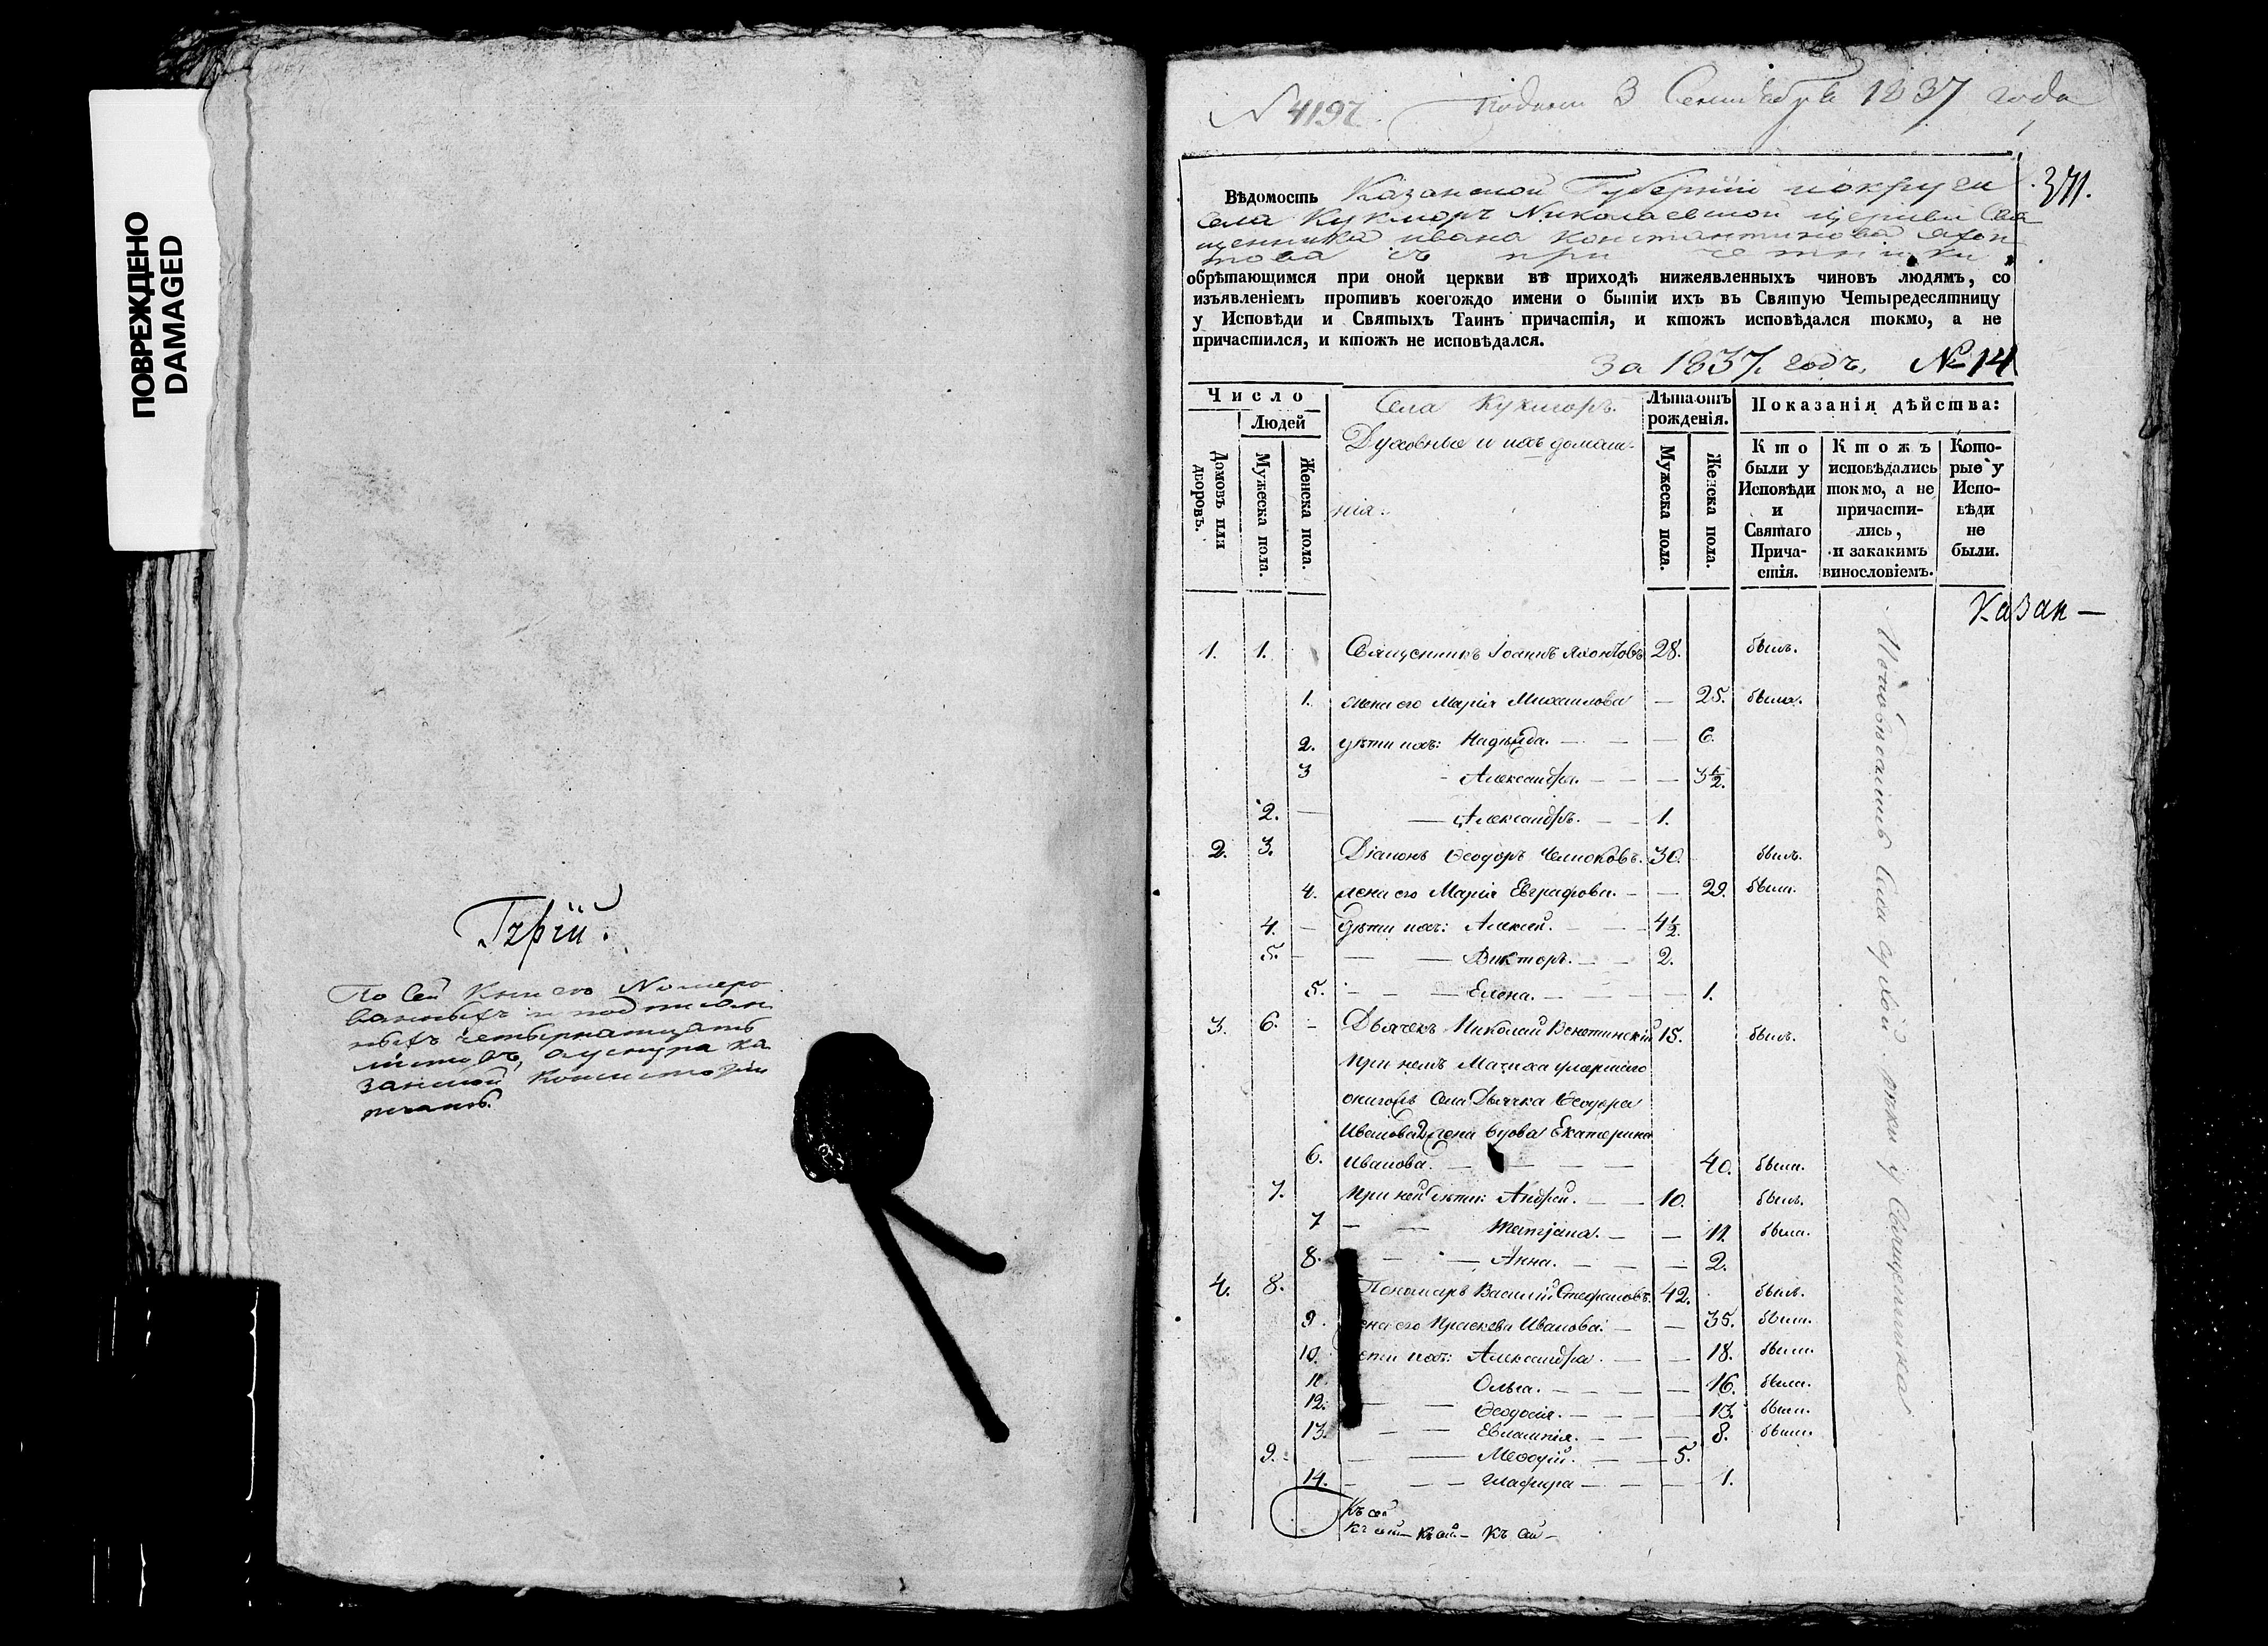 ПОВРЕЖДЕНО
DAMAGED
По Сей Книге Номеро
ванныхъ и подписан
ныхъ четырнатцать
листовъ, оу снура ка
занской консисторіи
печать.
N 4197. Подано 3 Сентября 1837 года
371.
Вѣдомость Казанской Губерніи и округи
села Кукморъ Николаевской церкви Свя
щенника ивана константинова яхон
това съ причетники
обрѣтающимся при оной церкви въ приходѣ нижеявленныхъ чиновъ людямъ, со
изъявленіемъ противъ коегождо имени о бытіи ихъ въ Святую Четыредесятницу
у Исповѣди и Святыхъ Таинъ причастія, и ктожъ исповѣдался токмо, а не
причастился, и ктожъ не исповѣдался.
за 1837. годъ. № 14
Число
Людей
Домовъ или дворовъ.
Мужеска пола.
Женска пола.
Села Кукморъ.
Духовные и ихъ домаш-
нія.
Лѣта отъ рожденія.
Мужеска пола.
Женска пола.
Показанія дѣйства:
Кто были у Исповѣди и Святаго Прича- стія.
Ктожъ исповѣдались токмо, а не причасти- лись, и закакимъ винословіемъ.
Кото- рые у Испо- вѣди не были.
Казан—
1. 1. Священникъ Іоаннъ Яхонтовъ 28. былъ.
1. жена его Марія Михаилова — 25. была.
2. дѣти ихъ: Надежда. — — — 6.
3 - Александра. — — — 3½.
2. — — Александръ. — — 1.
2. 3. Діаконъ Ѳеодоръ Челноковъ. 30. былъ.
4. жена его Марія Евграфова. — — 29. была.
4. — дѣти ихъ: Алексей. — — 4½.
5. — — — Викторъ. — — 2.
5. — — Елена. — — — 1.
3. 6. — Дьячекъ Николай Венетинскій 15. былъ.
При немъ Мачиха умершаго
оного жъ Села Дьячка Ѳеодора
Иванова жена вдова Екатерина
6. Иванова. — — — — 40. была.
7. При ней дѣти: Андрей. — — 10. былъ.
7 — — Татіана. — — 11. была.
8. — — Анна. — — — 2.
4. 8. Пономарь Василій Стефановъ. 42. былъ.
9. жена его Праскева Иванова. — — 35. была.
10. дѣти ихъ: Александра. — — 18. была.
11. Ольга. — — — — 16. была.
12. — — Ѳеодосія. — — — 13. была.
13. — — Евлампія. — — — 8. была.
9. — — Меѳодій. — — 5.
14. — — — Глафира — — — 1.
Къ сей
Къ сей — Къ сей — Къ сей —